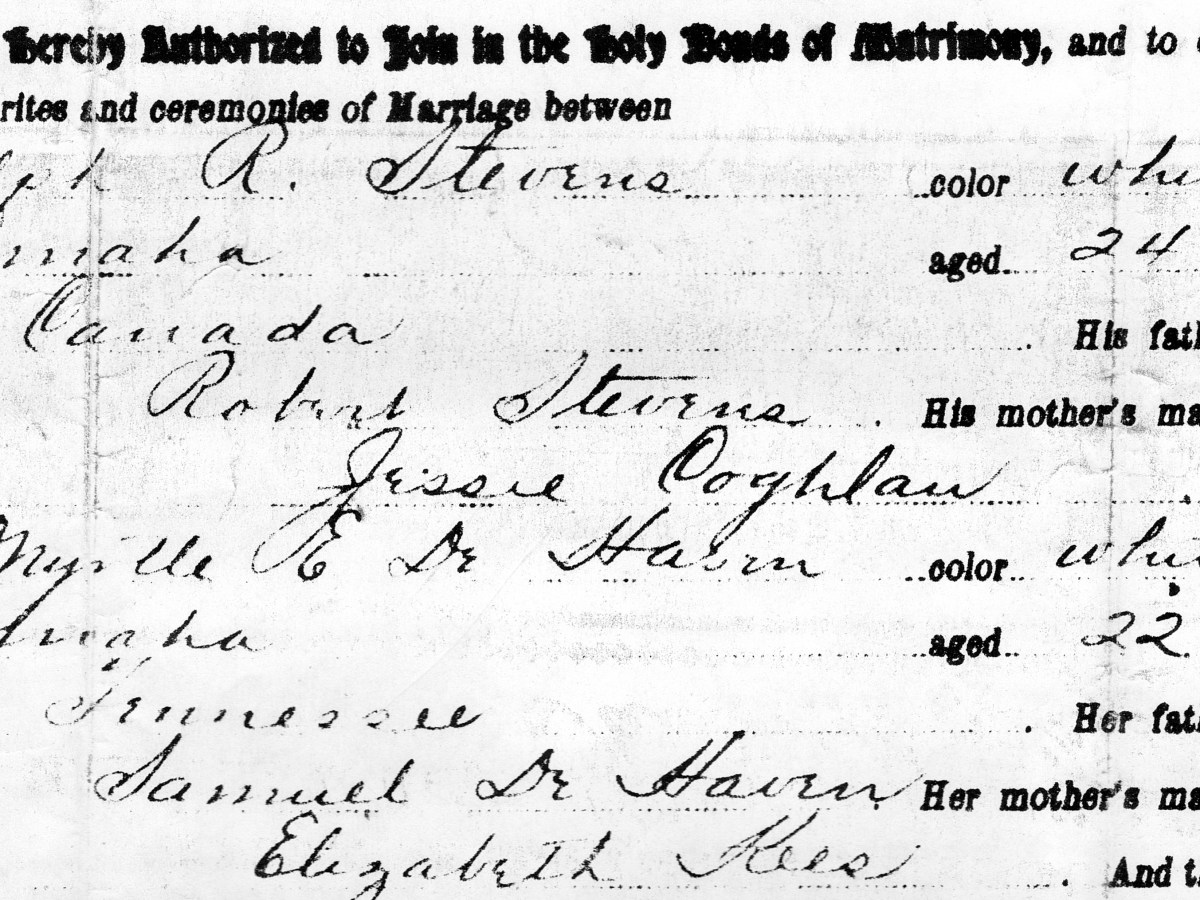 Hereby Authorized to Join in the Holy Bonds of Matrimony, and to
rites and ceremonies of Marriage between
R. Stevens color whi
maha aged 24
Canada His fath
Robert Stevens. His mother's ma
Jessie Coghlan.
Myrtle E De Haven color whi
maha aged 22.
Tennessee. Her fath
Samuel De Haven. Her mother's ma
Elizabeth Kees. And th